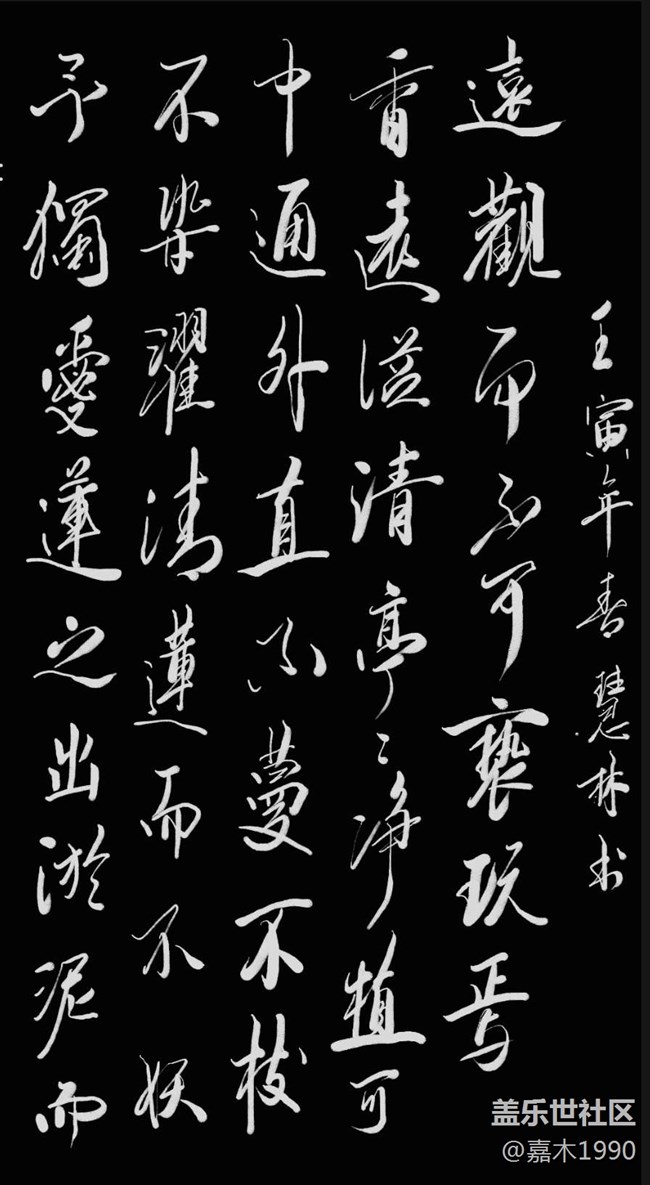 予獨愛蓮之出淤泥而
不染濯清蓮而不妖
中通外直不蔓不枝
香遠溢清亭々淨植可
遠觀而不可褻玩焉
壬寅年春慧林书
盖乐世社区
@嘉木1990